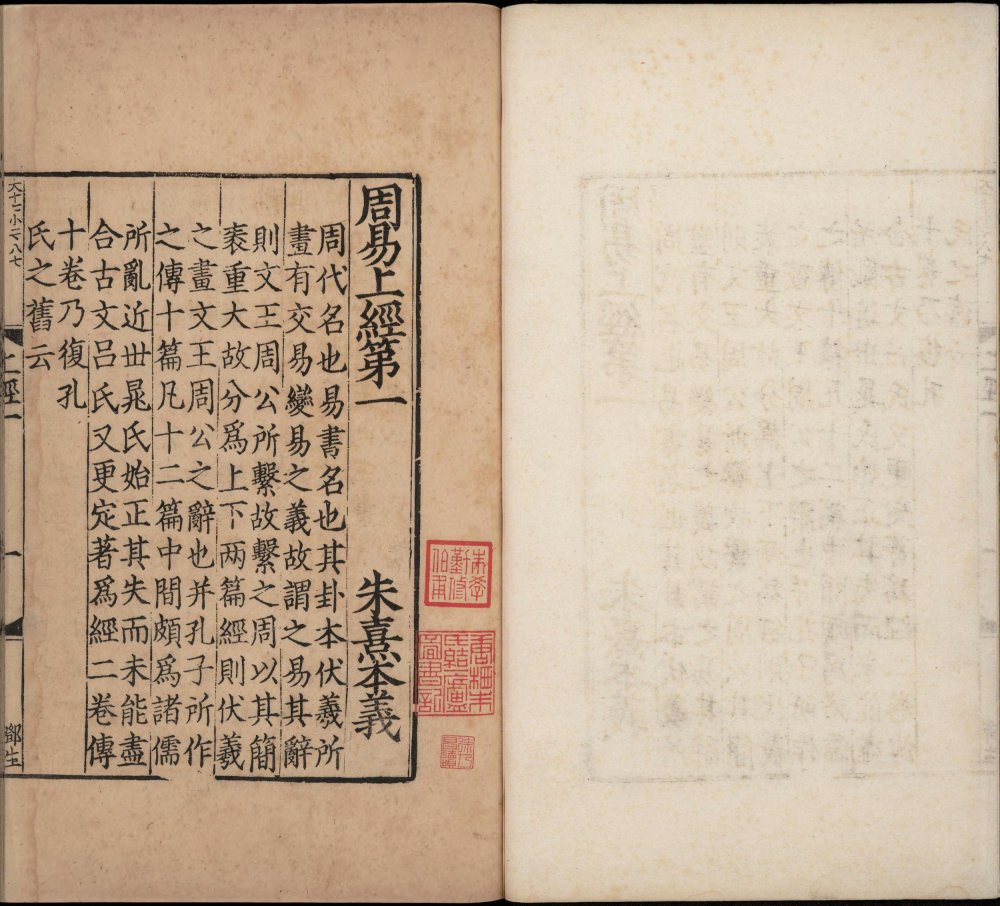 周易上經第一
朱熹本義
周代名也易書名也其卦本伏羲所
畫有交易變易之義故謂之易其辭
則文王周公所繫故繫之周以其簡
袠重大故分爲上下两篇經則伏羲
之畫文王周公之辭也并孔子所作
之傳十篇凡十二篇中間頗爲諸儒
所亂近世晁氏始正其失而未能盡
合古文吕氏又更定著爲經二卷傳
十卷乃復孔
氏之舊云
上經一
一
鄧生